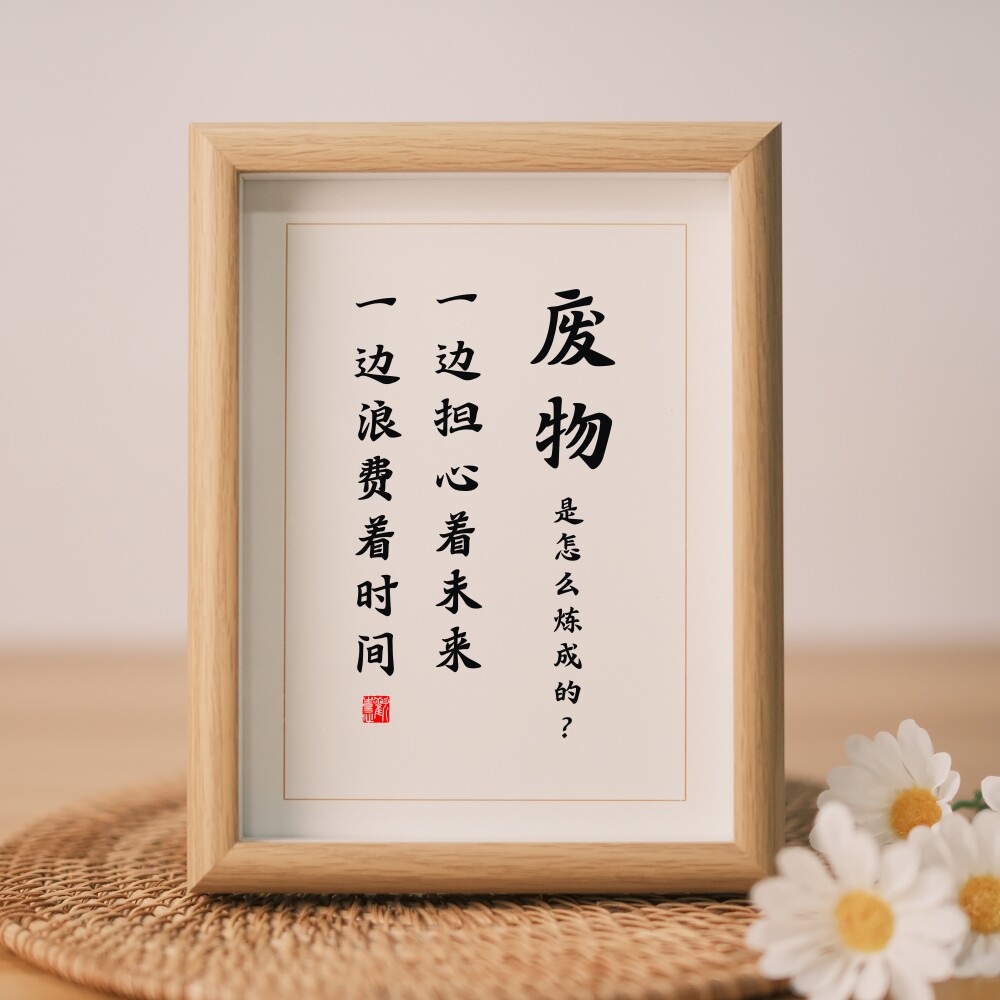 废物是怎么炼成的？
一边担心着未来
一边浪费着时间